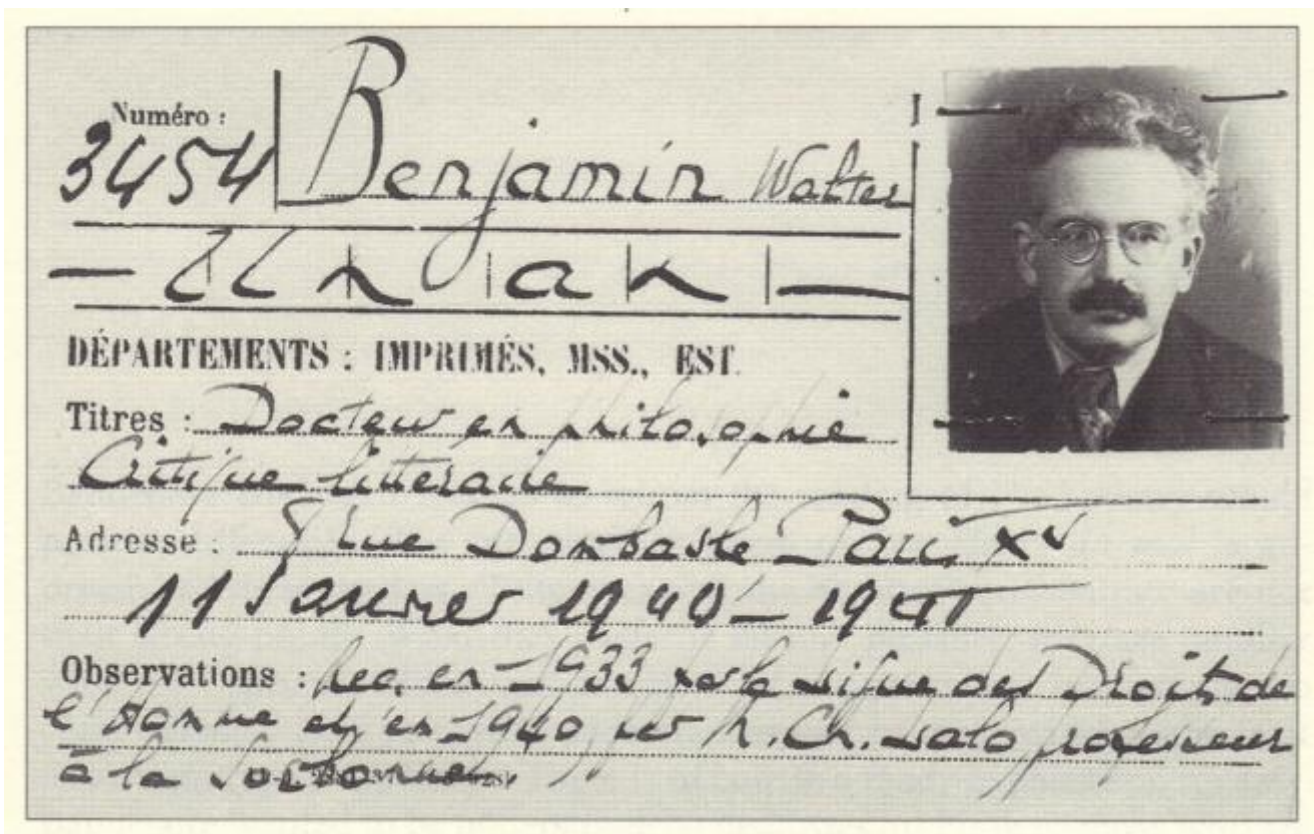 Numéro :
3454 Benjamin Walter
— Un an —
DÉPARTEMENTS : IMPRIMÉS, MSS., EST.
Titres : Docteur en philosophie
Critique littéraire
Adresse : rue Dombasle - Paris XV
11 Janvier 1940 - 1941
Observations : Rec. en 1933 par la Ligue des Droits de
l'Homme et en 1940 par M. Ch. Lalo professeur
à la Sorbonne